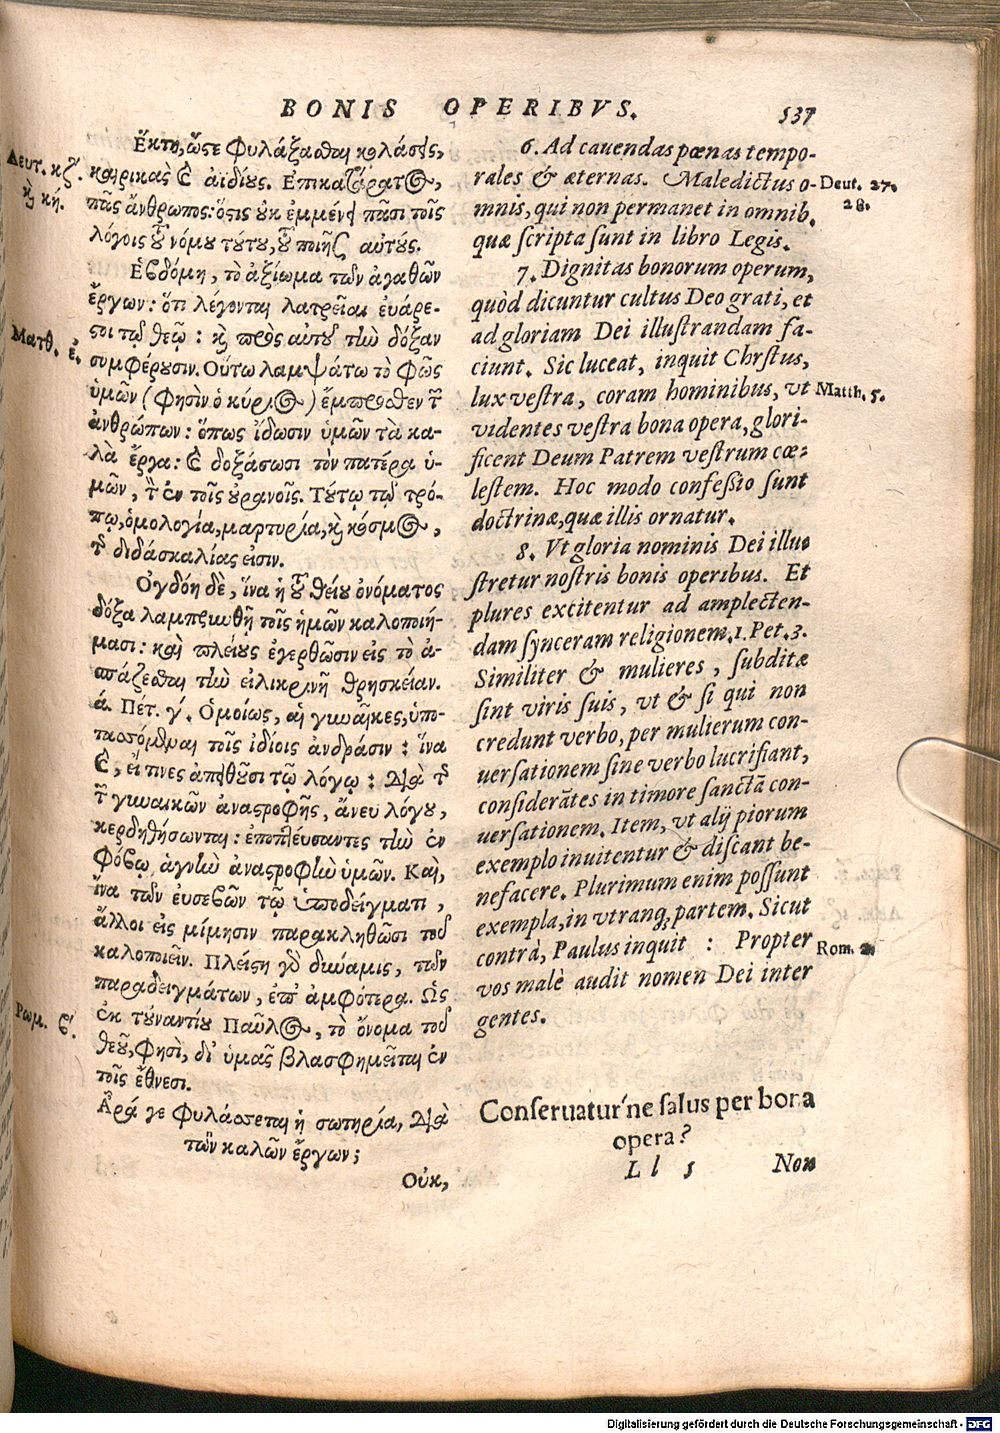 BONIS OPERIBVS. 537
Ἕκτη, ὥστε φυλάξασθαι κολάσεις,
καιρικὰς καὶ ἀϊδίους. Ἐπικατάρατος,
πᾶς ἄνθρωπος: ὅστις οὐκ ἐμμένει πᾶσι τοῖς
λόγοις τοῦ νόμου τούτου, τοῦ ποιῆσαι αὐτούς.
Ἑβδόμη, τὸ ἀξίωμα τῶν ἀγαθῶν
ἔργων: ὅτι λέγονται λατρεῖαι εὐάρε-
στοι τῷ θεῷ: καὶ πρὸς αὐτοῦ τὴν δόξαν
συμφέρουσιν. Οὕτω λαμψάτω τὸ φῶς
ὑμῶν (φησὶν ὁ κύριος) ἔμπροσθεν τῶν
ἀνθρώπων: ὅπως ἴδωσιν ὑμῶν τὰ κα-
λὰ ἔργα: καὶ δοξάσωσι τὸν πατέρα ὑ-
μῶν, τὸν ἐν τοῖς οὐρανοῖς. Τούτῳ τῷ τρό-
πῳ, ὁμολογία, μαρτυρία, καὶ κόσμος,
τῆς διδασκαλίας εἰσιν.
Ὀγδόη δὲ, ἵνα ἡ τοῦ θείου ὀνόματος
δόξα λαμπρυνθῇ τοῖς ἡμῶν καλοποιή-
μασι: καὶ πλείους ἐγερθῶσιν εἰς τὸ ἀ-
σπάζεσθαι τὴν εἰλικρινῆ θρησκείαν.
ά. Πέτ. γ΄. Ὁμοίως, αἱ γυναῖκες, ὑπο-
τασσόμεναι τοῖς ἰδίοις ἀνδράσιν: ἵνα
καὶ, εἴ τινες ἀπειθοῦσι τῷ λόγῳ: διὰ τῆς
τῶν γυναικῶν ἀναστροφῆς, ἄνευ λόγου,
κερδηθήσωνται: ἐποπτεύσαντες τὴν ἐν
φόβῳ ἁγνὴν ἀναστροφὴν ὑμῶν. Καὶ,
ἵνα τῶν εὐσεβῶν τῷ ὑποδείγματι,
ἄλλοι εἰς μίμησιν παρακληθῶσι τοῦ
καλοποιεῖν. Πλείστη γὰρ δύναμις, τῶν
παραδειγμάτων, ἐπ' ἀμφότερα. Ὡς
ἐκ τοὐναντίου Παῦλος, τὸ ὄνομα τοῦ
θεοῦ, φησὶ, δι' ὑμᾶς βλασφημεῖται ἐν
τοῖς ἔθνεσι.
Ἆρά γε φυλάσσεται ἡ σωτηρία, διὰ
τῶν καλῶν ἔργων;
Οὐκ,
Δευτ. κζ΄.
καὶ κή.
Ματθ. έ.
Ρωμ. β΄.
6. Ad cauendas pœnas tempo-
rales & æternas. Maledictus o-
mnis, qui non permanet in omnib.
quæ scripta sunt in libro Legis.
7. Dignitas bonorum operum,
quòd dicuntur cultus Deo grati, et
ad gloriam Dei illustrandam fa-
ciunt. Sic luceat, inquit Chrstus,
lux vestra, coram hominibus, vt
videntes vestra bona opera, glori-
ficent Deum Patrem vestrum cœ-
lestem. Hoc modo confeßio sunt
doctrinæ, quæ illis ornatur.
8. Vt gloria nominis Dei illu-
stretur nostris bonis operibus. Et
plures excitentur ad amplecten-
dam synceram religionem. 1. Pet. 3.
Similiter & mulieres, subditæ
sint viris suis, vt & si qui non
credunt verbo, per mulierum con-
uersationem sine verbo lucrifiant,
considerātes in timore sanctā con-
uersationem. Item, vt alij piorum
exemplo inuitentur & discant be-
nefacere. Plurimum enim possunt
exempla, in vtranq; partem. Sicut
contrà, Paulus inquit : Propter
vos malè audit nomen Dei inter
gentes.
Conseruatur'ne salus per bona
opera?
L l 5 Non
Deut. 27.
28.
Matth. 5.
Rom. 2.
Digitalisierung gefördert durch die Deutsche Forschungsgemeinschaft - DFG